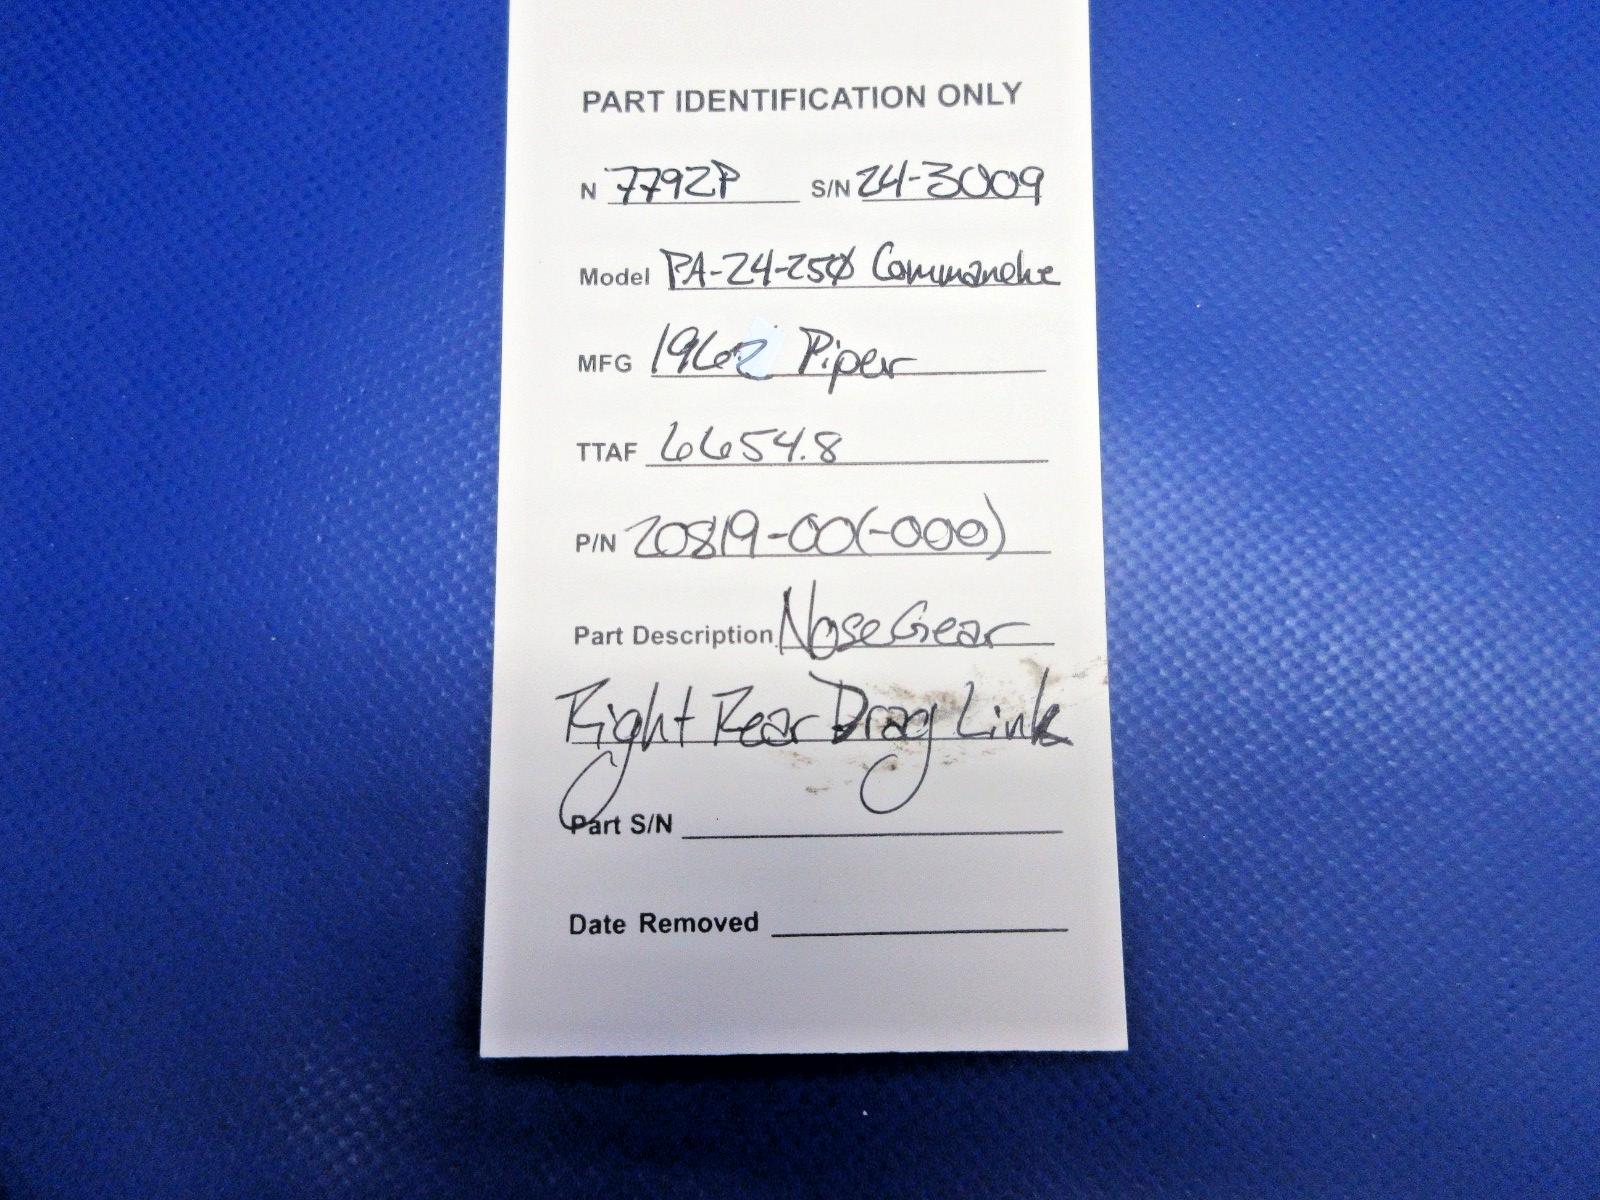 PART IDENTIFICATION ONLY
N 7792P S/N 24-3009
Model PA-24-250 Commanche
MFG 1962 Piper
TTAF 6654.8
P/N 20819-00(-000)
Part Description Nose Gear
Right Rear Drag Link
Part S/N
Date Removed